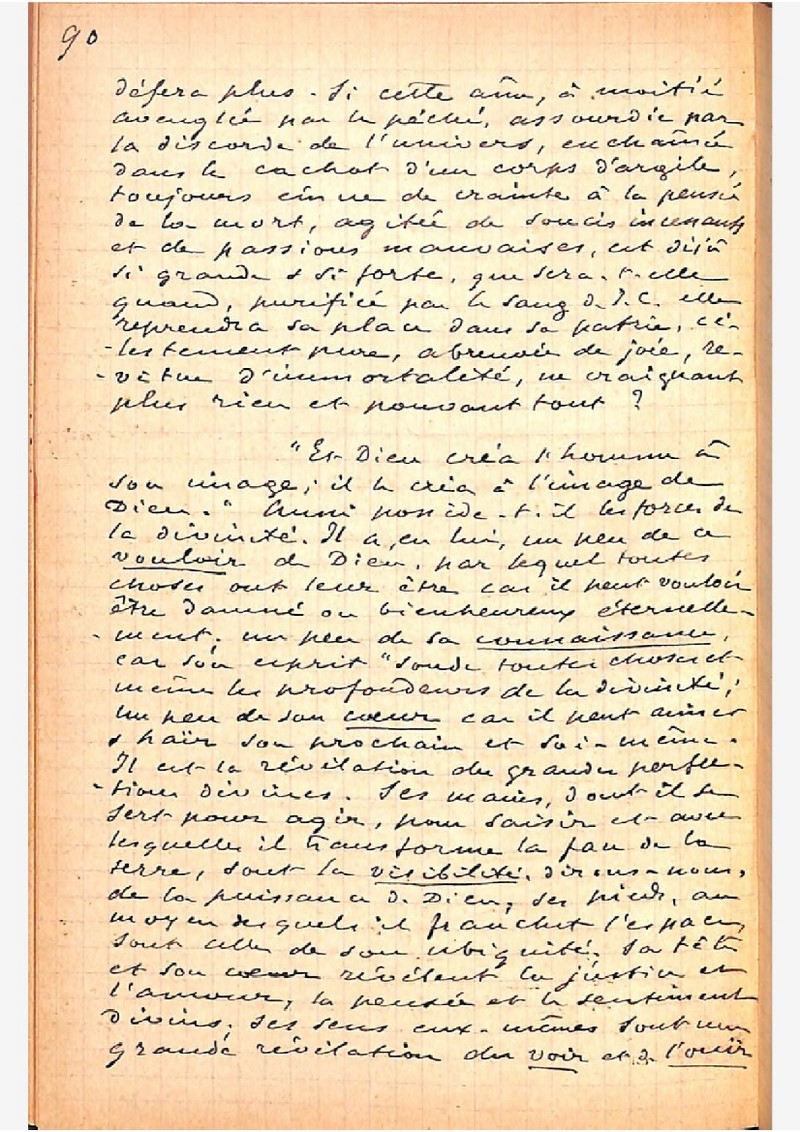 90
défera plus - Si cette âme, à moitié
aveuglée par le péché, assourdie par
la discorde de l'univers, enchaînée
dans le cachot d'un corps d'argile,
toujours émue de crainte à la pensée
de la mort, agitée de soucis incessants
et de passions mauvaises, est déjà
si grande & si forte, que sera-t-elle
quand, purifiée par le sang de J.C. elle
reprendra sa place dans sa patrie, cé-
-lestement pure, abreuvée de joie, re-
-vêtue d'immortalité, ne craignant
plus rien et pouvant tout ?
"Et Dieu créa l'homme à
son image; il le créa à l'image de
Dieu." Aussi possède-t-il les forces de
la divinité. Il a, en lui, un peu de ce
vouloir de Dieu, par lequel toutes
choses ont leur être car il peut vouloir
être damné ou bienheureux éternelle-
-ment; un peu de sa connaissance,
car son esprit "sonde toutes choses et
même les profondeurs de la divinité;
un peu de son cœur car il peut aimer
& haïr son prochain et soi-même.
Il est la révélation des grandes perfec-
-tions divines. Ses mains, dont il se
sert pour agir, pour saisir et avec
lesquelles il transforme la face de la
terre, sont la visibilité, dirons-nous,
de la puissance de Dieu; ses pieds, au
moyen desquels il franchit l'espace,
sont celle de son ubiquité. Sa tête
et son cœur révèlent la justice et
l'amour, la pensée et le sentiment
divins. Ses sens eux-mêmes sont une
grande révélation du voir et de l'ouïr